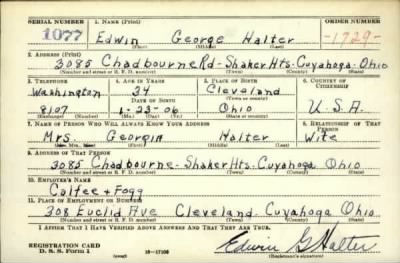 SERIAL NUMBER 1. NAME (Print) ORDER NUMBER
1077 Edwin George Halter -1729-
(First) (Middle) (Last)
2. ADDRESS (Print)
3085 Chadbourne Rd - Shaker Hts - Cuyahoga - Ohio
(Number and street or R. F. D. number) (Town) (County) (State)
3. TELEPHONE 4. AGE IN YEARS 5. PLACE OF BIRTH 6. COUNTRY OF CITIZENSHIP
Washington 34 Cleveland
DATE OF BIRTH (Town or county)
8107 1-23-06 Ohio U.S.A.
(Exchange) (Number) (Mo.) (Day) (Yr.) (State or country)
7. NAME OF PERSON WHO WILL ALWAYS KNOW YOUR ADDRESS 8. RELATIONSHIP OF THAT PERSON
Mrs. Georgia Halter Wife
(Mr., Mrs., Miss) (First) (Middle) (Last)
9. ADDRESS OF THAT PERSON
3085 Chadbourne - Shaker Hts. Cuyahoga Ohio
(Number and street or R. F. D. number) (Town) (County) (State)
10. EMPLOYER'S NAME
Calfee + Fogg
11. PLACE OF EMPLOYMENT OR BUSINESS
308 Euclid Ave Cleveland - Cuyahoga Ohio
(Number and street or R. F. D. number) (Town) (County) (State)
I AFFIRM THAT I HAVE VERIFIED ABOVE ANSWERS AND THAT THEY ARE TRUE.
REGISTRATION CARD
D. S. S. Form 1 16-17105 Edwin G Halter
(Registrant's signature)